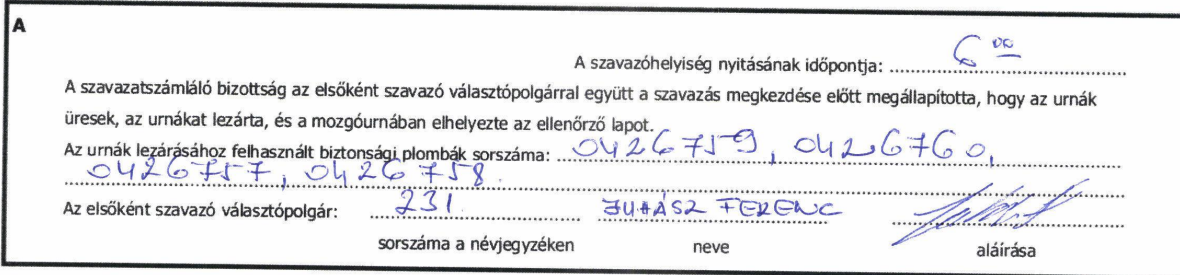 A
A szavazóhelyiség nyitásának időpontja: 6 00
A szavazatszámláló bizottság az elsőként szavazó választópolgárral együtt a szavazás megkezdése előtt megállapította, hogy az urnák
üresek, az urnákat lezárta, és a mozgóurnában elhelyezte az ellenőrző lapot.
Az urnák lezárásához felhasznált biztonsági plombák sorszáma: 0426759, 0426760,
0426757, 0426758.
Az elsőként szavazó választópolgár: 231. JUHÁSZ FERENC
sorszáma a névjegyzéken neve aláírása